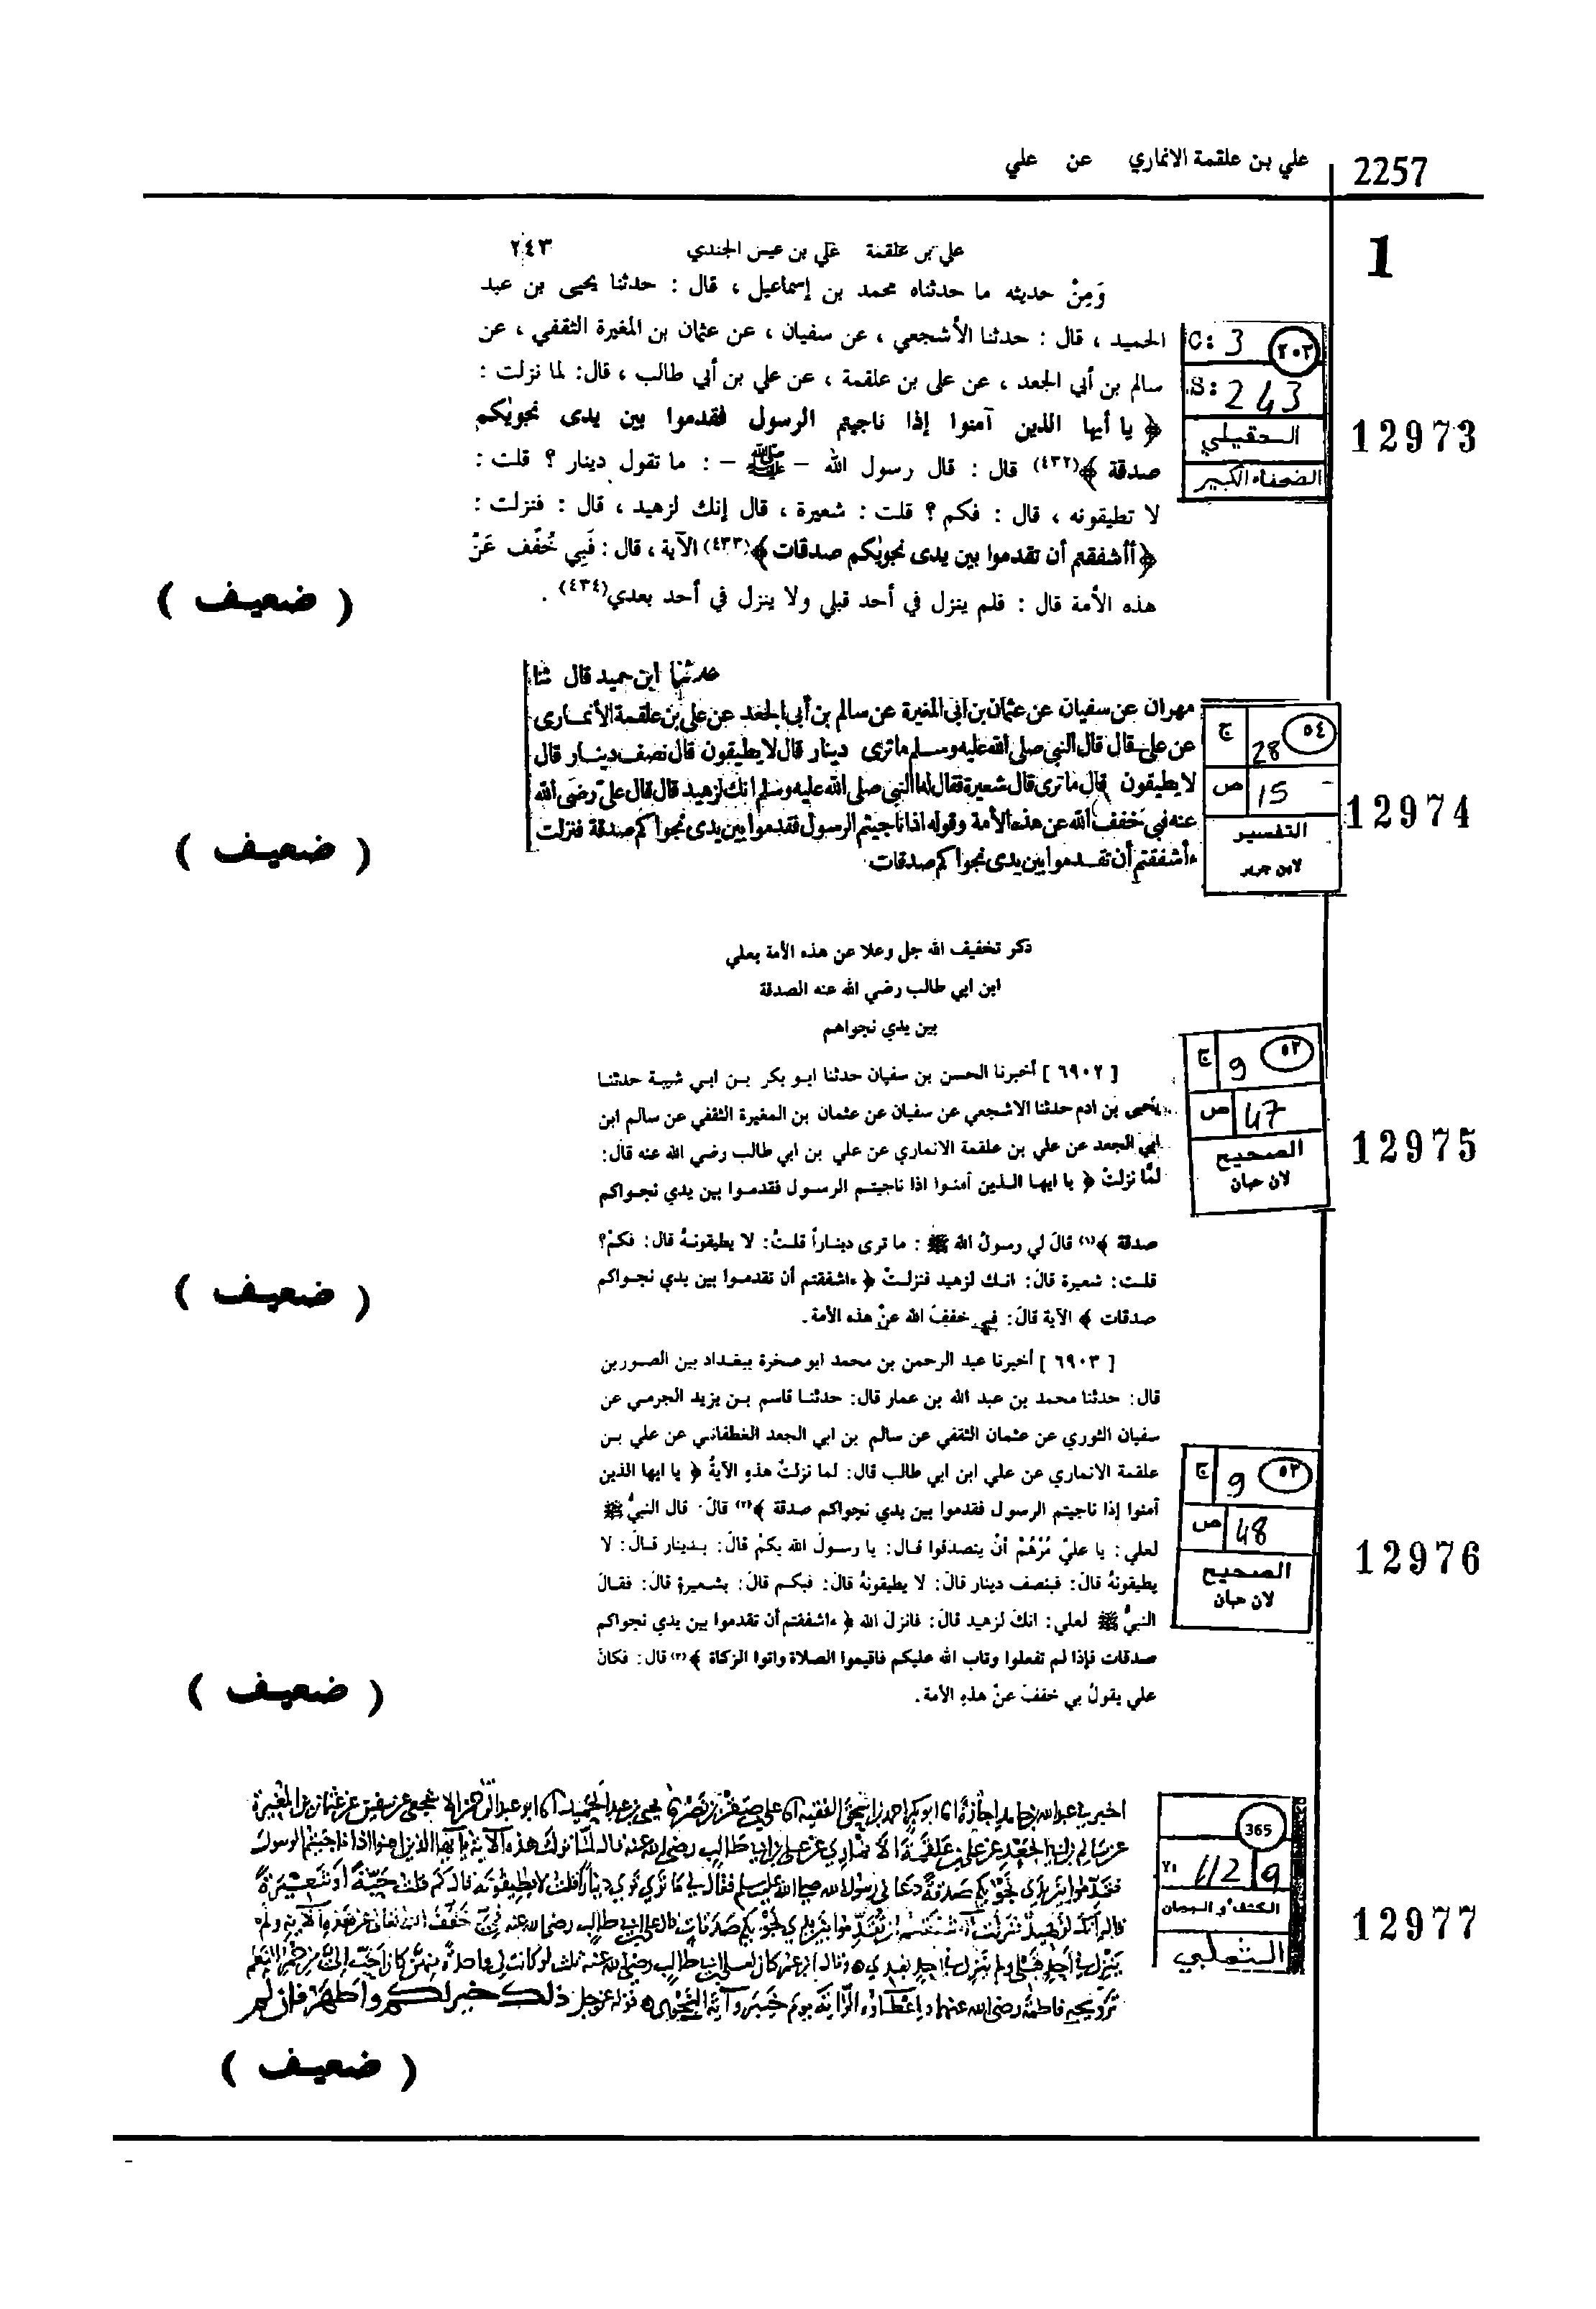 علي بن علقمة الانماري عن علي
2257
1
علي بن علقمة علي بن عيسى الجندي ٢٤٣
وَمِنْ حديثه ما حدثناه محمد بن إسماعيل ، قال : حدثنا يحيى بن عبد
الحميد ، قال : حدثنا الأشجعي ، عن سفيان ، عن عثمان بن المغيرة الثقفي ، عن
سالم بن أبي الجعد ، عن على بن علقمة ، عن علي بن أبي طالب ، قال: لما نزلت :
﴿ يا أيها الذين آمنوا إذا ناجيتم الرسول فقدموا بين يدى نجويٰكم
صدقة ﴾(٤٣٢) قال : قال رسول الله – ﷺ – : ما تقول دينار ؟ قلت :
لا تطيقونه ، قال : فكم ؟ قلت : شعيرة ، قال إنك لزهيد ، قال : فنزلت :
﴿ أأشفقتم أن تقدموا بين يدى نجويٰكم صدقات ﴾(٤٣٣) الآية ، قال : فَبِي خُفِّف عَنْ
هذه الأمة قال : فلم ينزل في أحد قبلي ولا ينزل في أحد بعدي(٤٣٤) .
C: 3 ٢٠٢
S: 243
العقيلي
الضعفاء الكبير
12973
( ضعيف )
حدثنا ابن حميد قال ثنا
مهران عن سفيان عن عثمان بن أبى المغيرة عن سالم بن أبى الجعد عن على بن علقمة الأنمارى
عن على قال قال النبى صلى الله عليه وسلم ما ترى دينار قال لا يطيقون قال نصف دينار قال
لا يطيقون قال ما ترى قال شعيرة فقال له النبى صلى الله عليه وسلم انك لزهيد قال قال على رضى الله
عنه فبى خفف الله عن هذه الأمة وقوله اذا ناجيتم الرسول فقدموا بين يدى نجواكم صدقة فنزلت
ءأشفقتم أن تقدموا بين يدى نجواكم صدقات
ج 28 ٥٤
ص 15
التفسير
لابن جرير
12974
( ضعيف )
ذكر تخفيف الله جل وعلا عن هذه الأمة بعلي
ابن ابي طالب رضي الله عنه الصدقة
بين يدي نجواهم
[ ٦٩٠٢ ] أخبرنا الحسن بن سفيان حدثنا ابو بكر بن ابي شيبة حدثنا
يحيى بن ادم حدثنا الاشجعي عن سفيان عن عثمان بن المغيرة الثقفي عن سالم ابن
ابي الجعد عن علي بن علقمة الانماري عن علي بن ابي طالب رضي الله عنه قال:
لمّا نزلتْ ﴿ يا ايها الذين آمنوا اذا ناجيتم الرسول فقدموا بين يدي نجواكم
صدقة ﴾(١) قالَ لي رسولُ الله ﷺ : ما ترى ديناراً قلتُ: لا يطيقونهُ قال: فكمْ؟
قلت: شعيرة قالَ: انك لزهيد فنزلتْ ﴿ ءاشفقتم أن تقدموا بين يدي نجواكم
صدقات ﴾ الآية قالَ: فبي خففَ الله عنْ هذه الأمة.
ج 9 ٥٢
ص 47
الصحيح
لابن حبان
12975
( ضعيف )
[ ٦٩٠٣ ] أخبرنا عبد الرحمن بن محمد ابو صخرة ببغداد بين الصورين
قال: حدثنا محمد بن عبد الله بن عمار قال: حدثنا قاسم بن يزيد الجرمي عن
سفيان الثوري عن عثمان الثقفي عن سالم بن ابي الجعد الغطفاني عن علي بن
علقمة الانماري عن علي ابن ابي طالب قال: لما نزلتْ هذهِ الآيةُ ﴿ يا ايها الذين
آمنوا إذا ناجيتم الرسول فقدموا بين يدي نجواكم صدقة ﴾(٢) قالَ. قال النبيُّ ﷺ
لعلي: يا عليّ مُرْهُمْ أنْ يتصدقوا قال: يا رسولَ الله بكمْ قالَ: بدينار قالَ: لا
يطيقونهُ قالَ: فبنصف دينار قالَ: لا يطيقونهُ قالَ: فبكم قالَ: بشعيرةٍ قالَ: فقالَ
النبيُّ ﷺ لعلي: انكَ لزهيد قالَ: فانزلَ الله ﴿ ءاشفقتم أن تقدموا بين يدي نجواكم
صدقات فإذا لم تفعلوا وتاب الله عليكم فاقيموا الصلاة واتوا الزكاة ﴾(٣) قال: فكانَ
علي يقولُ بي خففَ عنْ هذهِ الأمة.
ج 9 ٥٢
ص 48
الصحيح
لابن حبان
12976
( ضعيف )
اخبرني عبدالله بن حامد اجازة انا ابوبكر احمد بن اسحق الفقيه انا علي بن صقر بن نصر نا يحيى بن عبد الحميد نا ابو عبد الرحمن الاشجعي عن سفين عن عثمان بن المغيرة
عن سالم بن ابي الجعد عن علي بن علقمة الانماري عن علي بن ابي طالب رضي الله عنه قال لما نزلت هذه الاية يا ايها الذين امنوا اذا ناجيتم الرسول
فقدموا بين يدي نجواكم صدقة دعاني رسول الله صلى الله عليه وسلم فقال لي ما تري تري دينارا قلت لا يطيقونه قال كم قلت حبة او شعيرة
قال انك لزهيد فنزلت أأشفقتم ان تقدموا بين يدي نجواكم صدقات قال علي بن ابي طالب رضي الله عنه فبي خفف الله تعالى عن هذه الامة ولم
ينزل في احد قبلي ولم ينزل في احد بعدي وقال ابن عمر كان لعلي بن ابي طالب رضي الله عنه ثلث لو كانت لي واحدة منهن كان احب الي من حمر النعم
تزويجه فاطمة رضي الله عنها واعطاؤه الراية يوم خيبر وآية النجوى قوله عز وجل ذلك خير لكم واطهر فان لم
365
Y: 112 9
الكشف و البيان
الثعلبي
12977
( ضعيف )